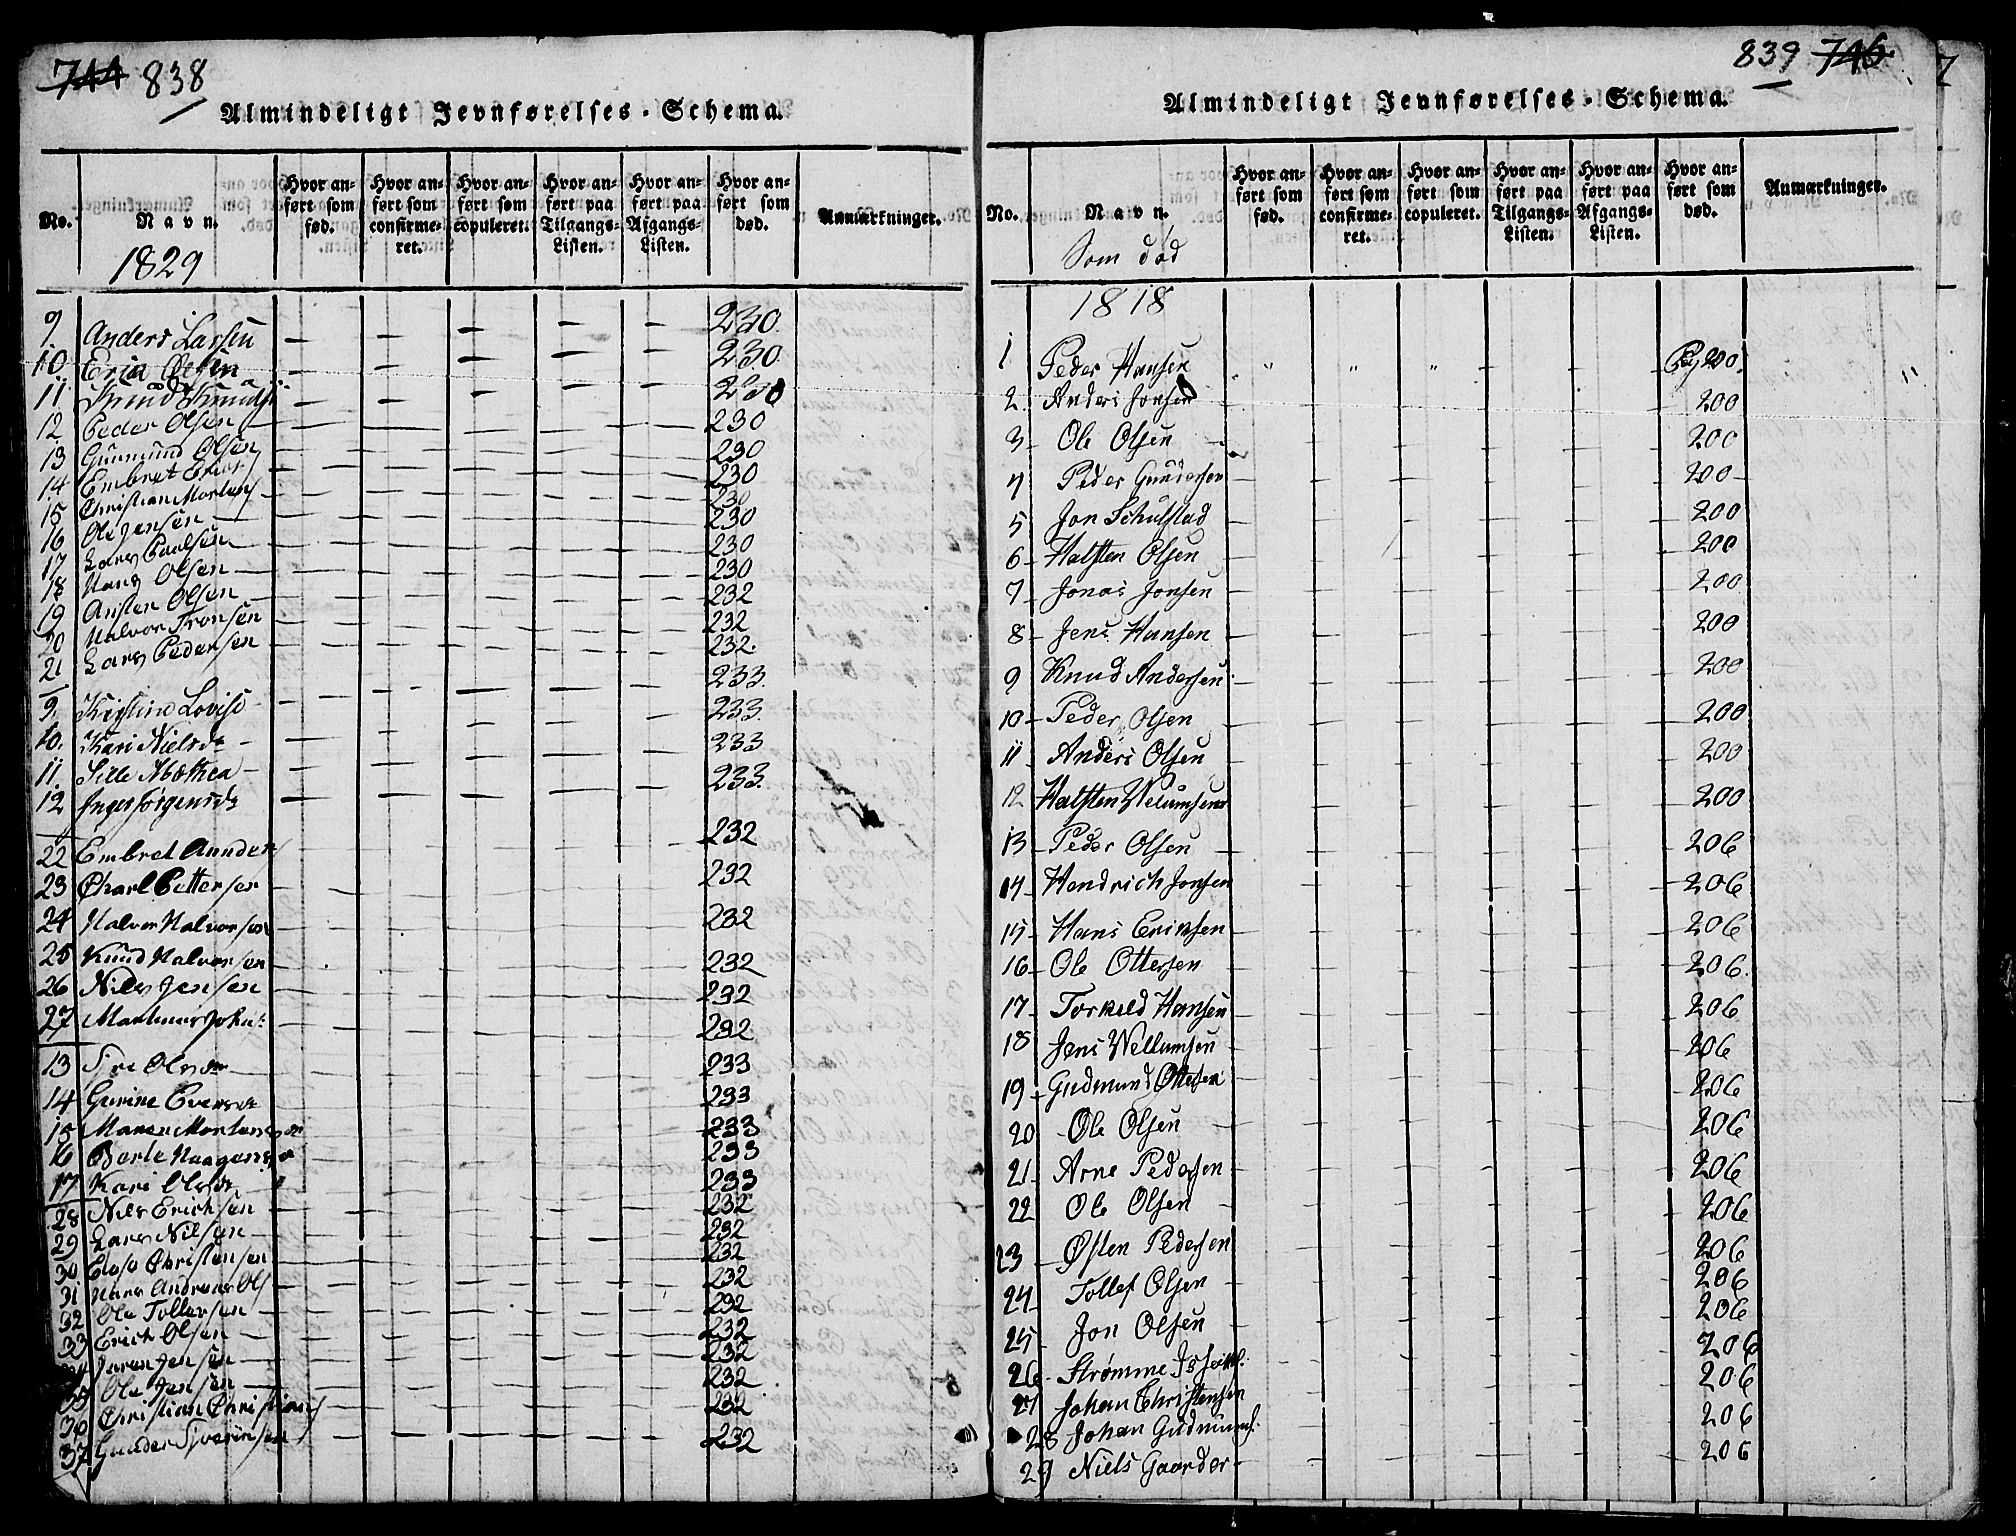 744 838
Almindeligt Jevnførelses-Schema.
No. Navn. Hvor anført som fød. Hvor anført som confirmeret. Hvor anført som copuleret. Hvor anført paa Tilgangs-Listen. Hvor anført paa Afgangs-Listen. Hvor anført som død. Anmærkninger.
1829
9. Anders Larsen 230
10 Eric Olsen 230
11 Knud Knuds 230
12 Peder Olsen 230
13 Gunmund Olsen 230
14 Embret Erics 230
15 Christian Mortens 230
16 Ole Jensen 230
17 Lars Paulsen 230
18 Hans Olsen 230
19 Austen Olsen 232
20 Halvor Tronsen 232
21 Lars Pedersen 232.
9. Kirstine Lovise 233.
10. Kari Nielsdr 233.
11. Sille Mathea 233
12 Inger Jørgensdr 233.
22 Embret Aunders 232
23 Charl Pettersen 232
24 Halvor Halvorsen 232
25 Knud Halvorsen 232
26 Nils Jensen 232
27 Martinus Johns: 232
13 Siri Olsdr 233
14 Gurine Eversdr 233
15 Maren Mortensdr 233
16 Berte Haagensdr 233
17 Kari Olsdr 233
28 Nils Erichsen 232
29 Lars Nilsen 232
30 Claso Christensen 232
31 Hans Andreas Ols 232
32 Ole Tollersen 232
33 Erich Olsen 232
34 Søren Jensen 232
35 Ole Jensen 232
36 Christian Christians 232
37 Gunder Syversen 232
839 746
Almindeligt Jevnførelses-Schema.
No. Navn. Hvor anført som fød. Hvor anført som confirmeret. Hvor anført som copuleret. Hvor anført paa Tilgangs-Listen. Hvor anført paa Afgangs-Listen. Hvor anført som død. Anmærkninger.
Som død
1818
1 Peder Hansen Pag 200.
2. Anders Jonsen 200
3 Ole Olsen 200
4 Peder Gundersen 200
5 Jon Schulstad 200
6 Halsten Olsen 200
7 Jonas Jonsen 200
8 Jens Hansen 200
9 Knud Andersen 200
10 Peder Olsen 200
11 Anders Olsen 200
12 Halsten Velumsen 200
13 Peder Olsen 206
14 Hendrich Jonsen 206
15 Hans Eriksen 206
16 Ole Ottersen 206.
17 Torkeld Hansen 206
18 Jens Wellumsen 206
19 Gudmund Ottesen 206
20 Ole Olsen 206
21 Arne Pedersen 206
22 Ole Olsen 206
23 Østen Pedersen 206
24 Tollef Olsen 206
25 Jon Olsen 206
26 Strømme 206
27 Johan Christensen 206
28 Johan Gudmunds. 206
29 Niels Gaarder 206